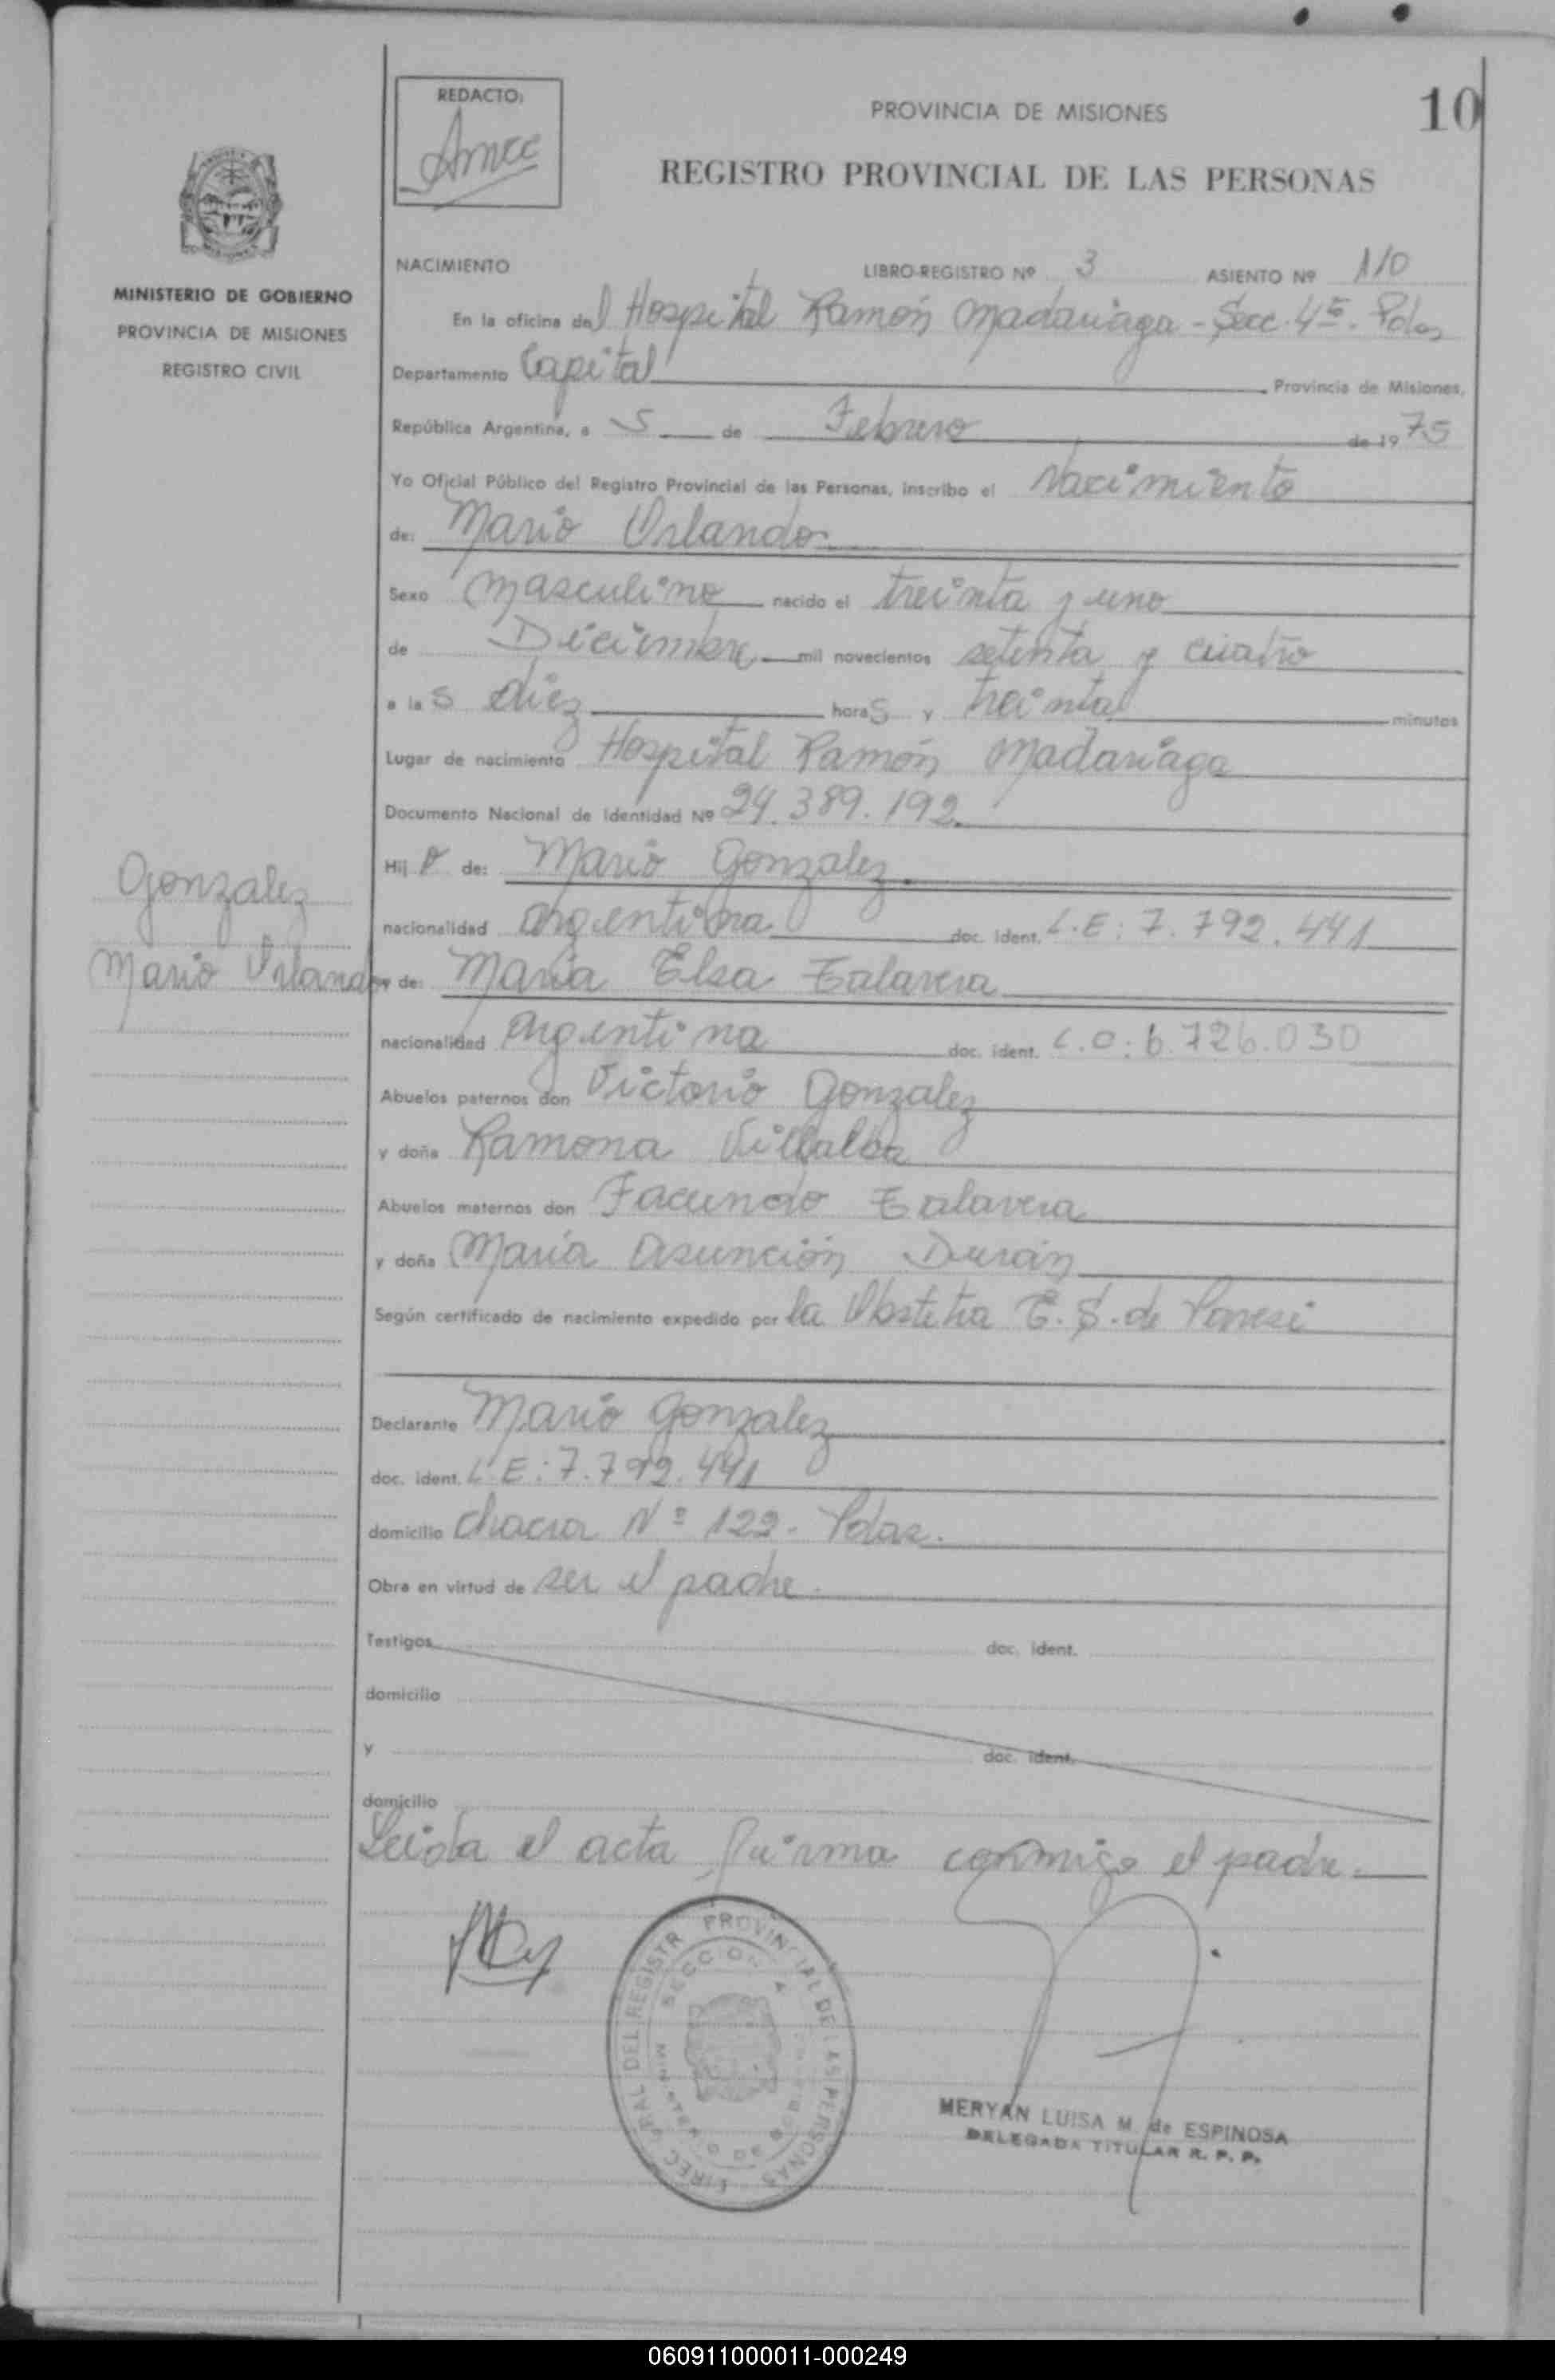 REDACTO:
10
PROVINCIA DE MISIONES
REGISTRO PROVINCIAL DE LAS PERSONAS
MINISTERIO DE GOBIERNO
PROVINCIA DE MISIONES
REGISTRO CIVIL
NACIMIENTO LIBRO-REGISTRO Nº 3 ASIENTO Nº 110
En la oficina del Hospital Ramón Madariaga - Secc. 4ª. Pdas
Departamento Capital Provincia de Misiones,
República Argentina, a 5 de Febrero de 1975
Yo Oficial Público del Registro Provincial de las Personas, inscribo el Nacimiento
de: Mario Orlando
Sexo masculino nacido el treinta y uno
de Diciembre mil novecientos setenta y cuatro
a las diez horas y treinta minutos
Lugar de nacimiento Hospital Ramón Madariaga
Documento Nacional de Identidad Nº 24.389.192
Hijo de: Mario Gonzalez
nacionalidad argentina doc. ident. L.E: 7.792.441
Gonzalez
Mario Orlando
y de: María Elsa Talavera
nacionalidad argentina doc. ident. L.C: 6.726.030
Abuelos paternos don Victorio Gonzalez
y doña Ramona Villalba
Abuelos maternos don Facundo Talavera
y doña María Asunción Durán
Según certificado de nacimiento expedido por la Obstetra E. S. de
Declarante Mario Gonzalez
doc. ident. L.E: 7.792.441
domicilio Chacra Nº 122 - Pdas.
Obra en virtud de ser el padre.
Testigos doc. ident.
domicilio
y doc. ident.
domicilio
Leída el acta firma conmigo el padre.
DIREC GRAL DEL REGISTR PROVINCIAL DE LAS PERSONAS
SECCION 4
MINISTERIO DE GOBIERNO
MERYAN LUISA M. de ESPINOSA
DELEGADA TITULAR R. P. P.
060911000011-000249